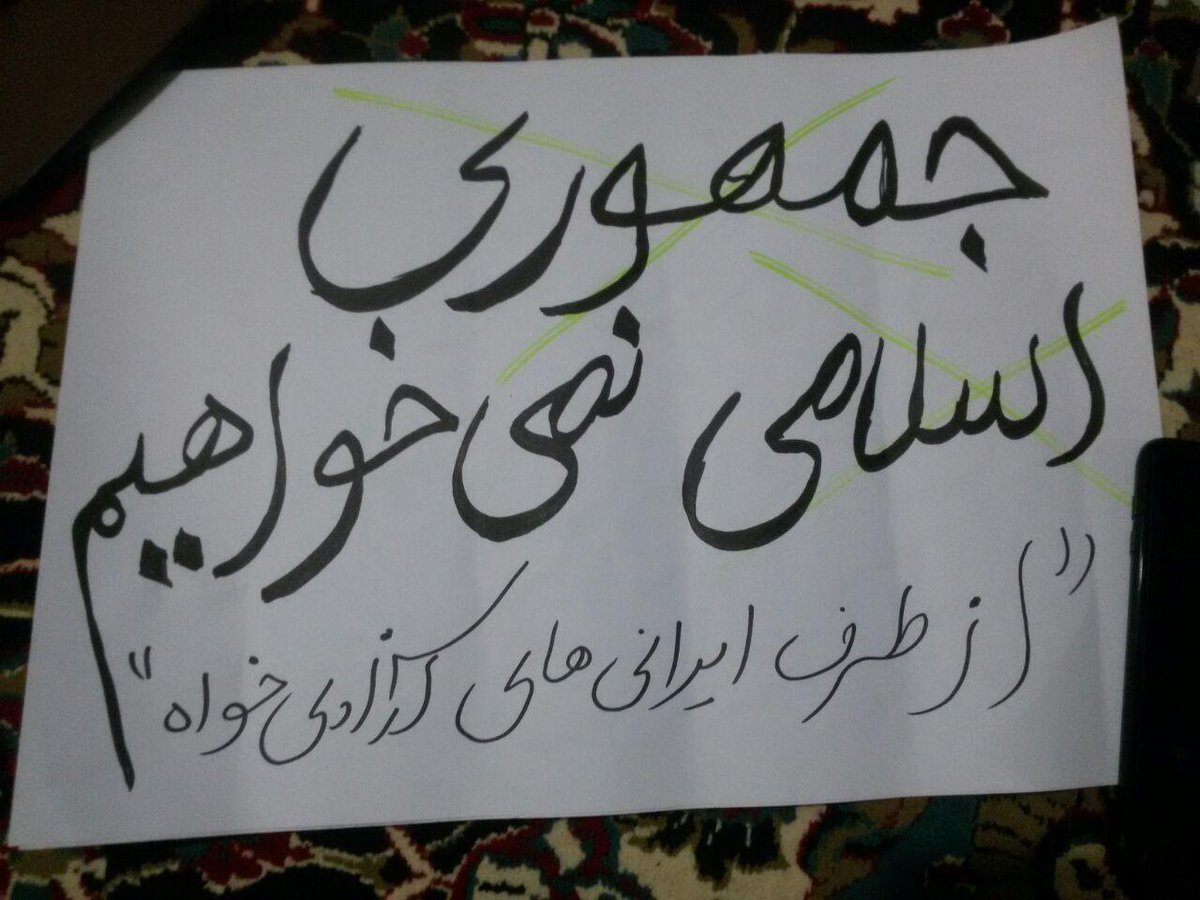 جمهوری
اسلامی نمی خواهیم
"از طرف ایرانی های آزادی خواه"